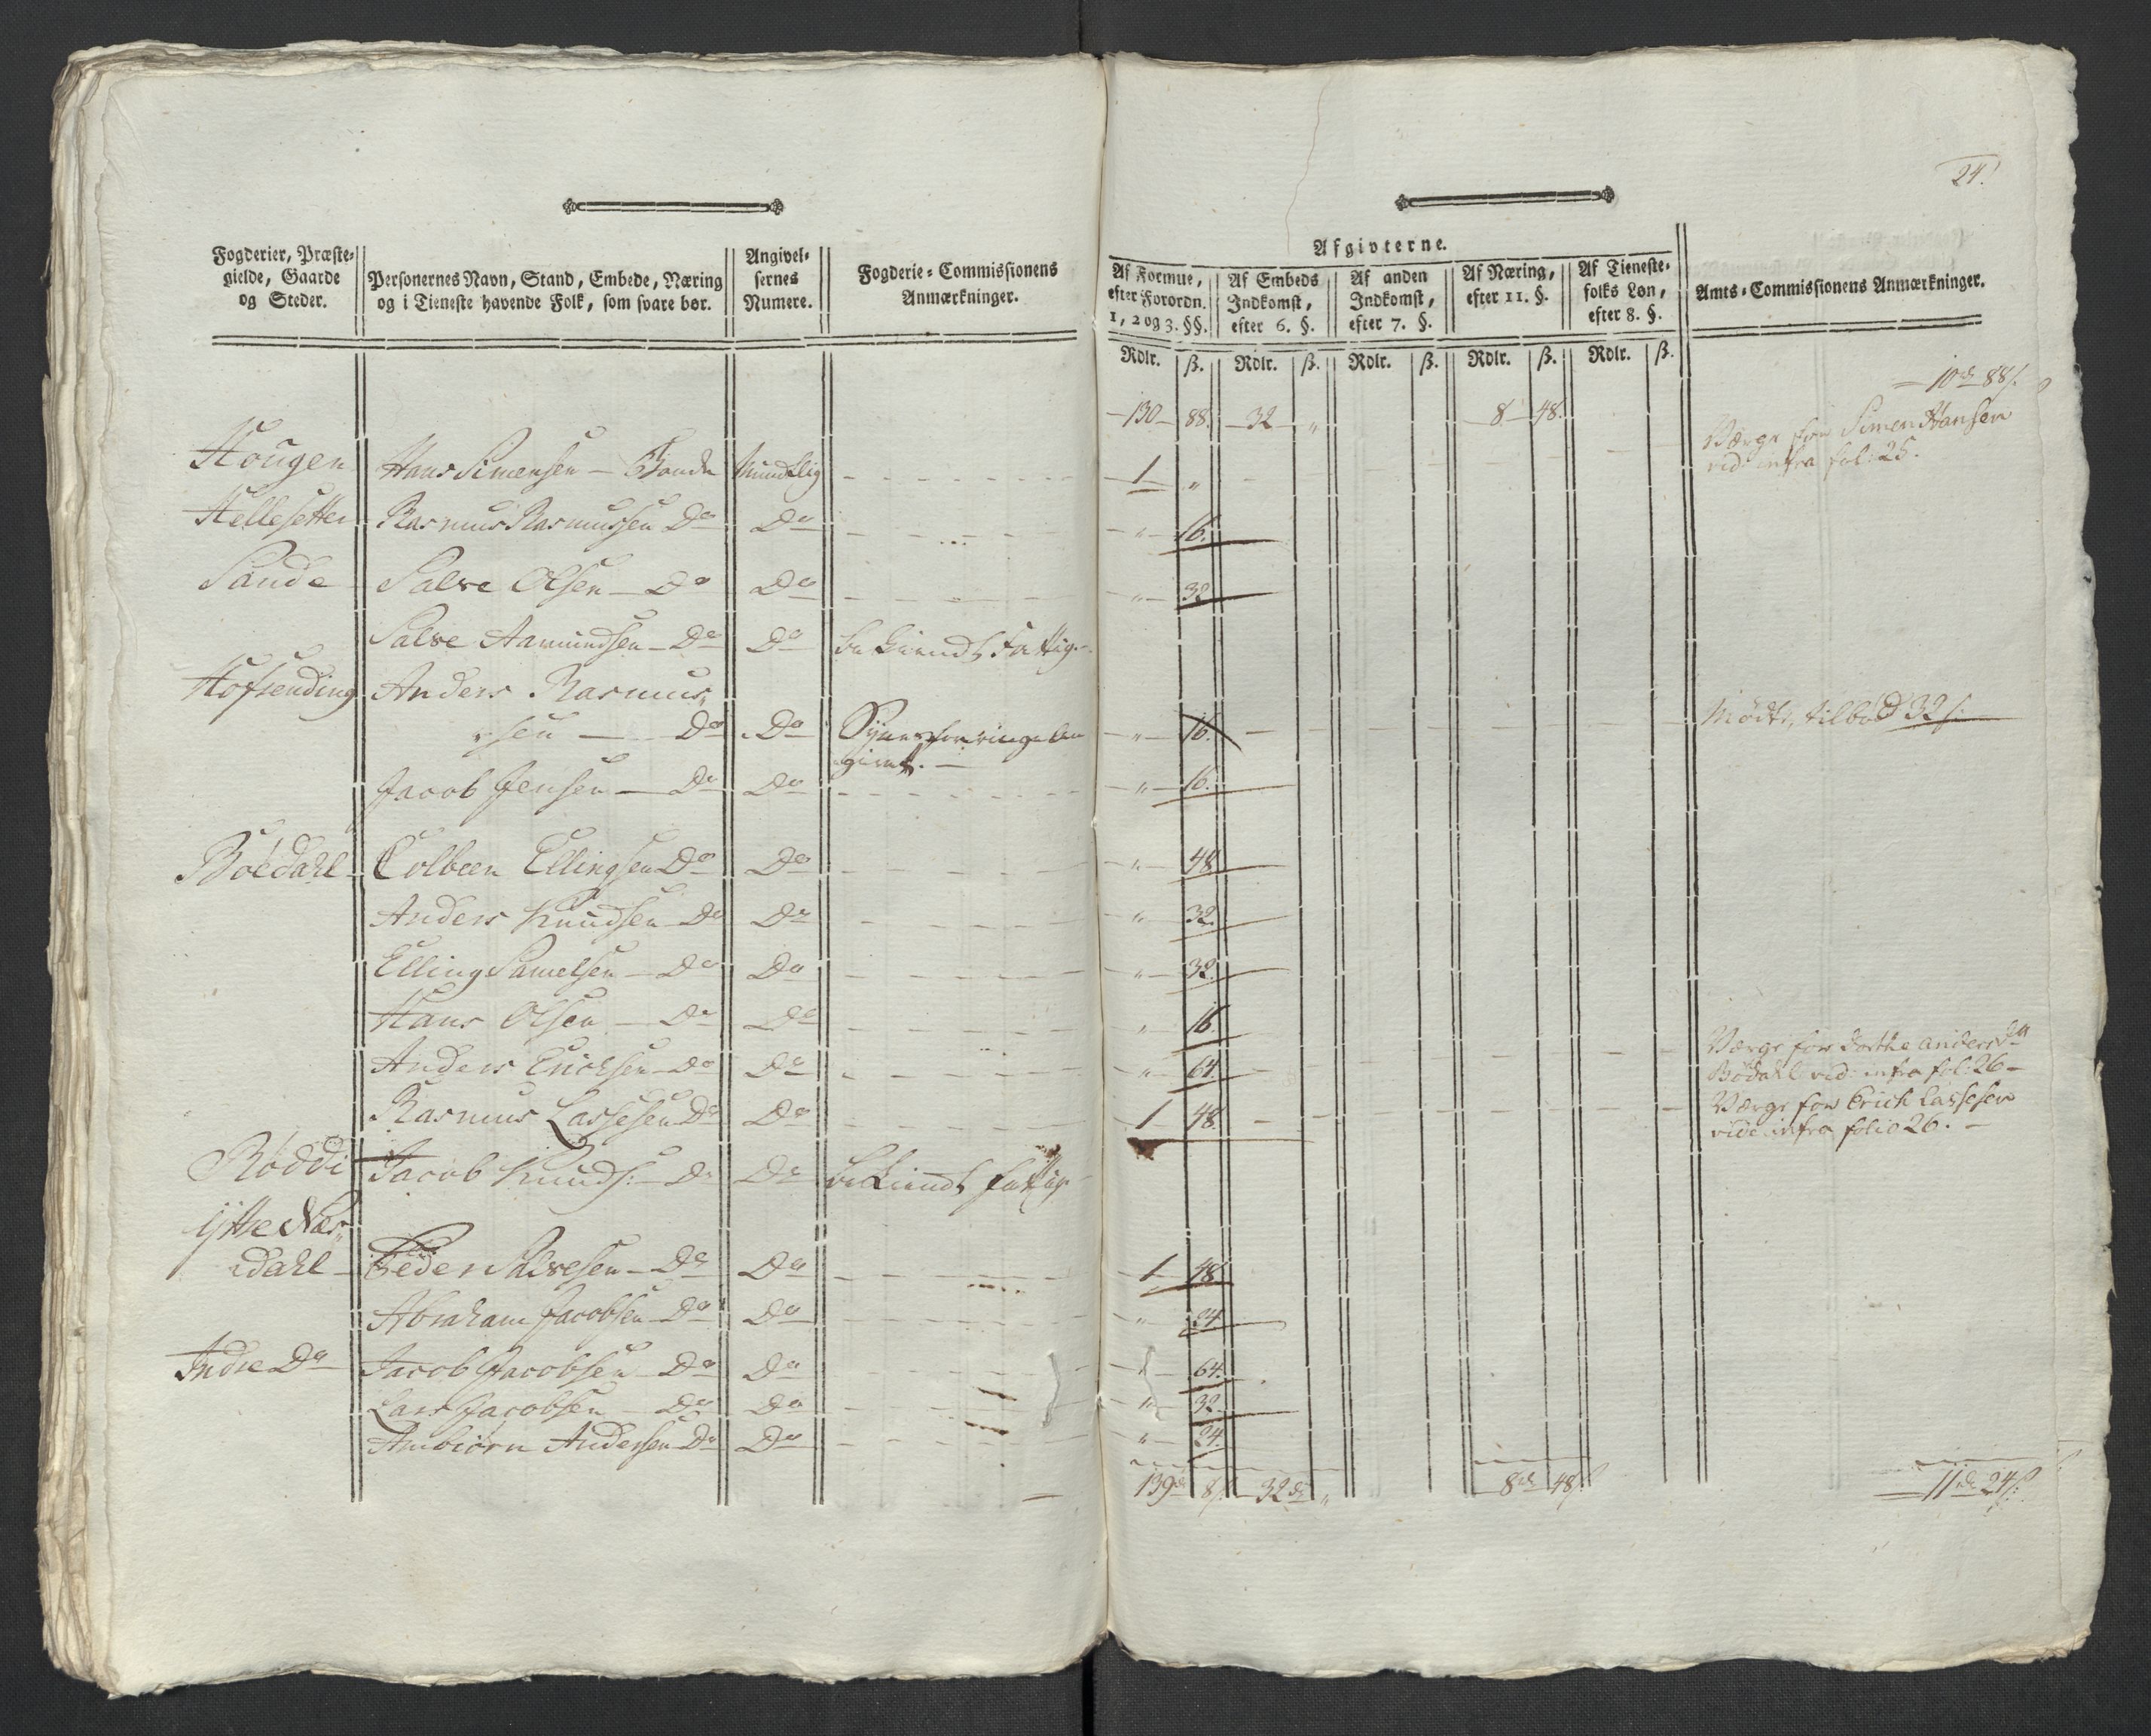 24.
Fogderier, Præste-
gielde, Gaarde
og Steder.
Personernes Navn, Stand, Embede, Næring
og i Tieneste havende Folk, som svare bør.
Angivel-
sernes
Numere.
Fogderie-Commissionens
Anmærkninger.
Afgivterne.
Af Formue,
efter Forordn.
1, 2 og 3. §§.
Af Embeds
Indkomst,
efter 6. §.
Af anden
Indkomst,
efter 7. §.
Af Næring,
efter 11. §.
Af Tieneste-
folks Løn,
efter 8. §.
Amts-Commissionens Anmærkninger.
Rdlr. ß. Rdlr. ß. Rdlr. ß. Rdlr. ß. Rdlr. ß.
10 rd 88 s.
130 88. 32 „ 8 48.
Værge for Simen Hansen
vid: infra fol: 25.
Hougen Hans Simensen Bonde Mundtlig 1 „
Hellesetter Rasmus Rasmussen Do Do „ 16.
Sande Salve Olsen Do Do „ 32
Salve Aamundsen Do Do bekiendt Fattig
Hofsending Anders Rasmus„
„sen Do Do Synes for ringe an „ 16. Mødte, tilbød 32 s.
givet.
Jacob Jensen Do Do „ 16.
Böedahl Colbeen Ellingsen Do Do „ 48
Anders Knudsen Do Do „ 32.
Elling Samelsen Do Do „ 32.
Hans Olsen Do Do „ 16
Værge for Dorthe Andersdn
Anders Erichsen Do Do „ 64. Bødahl vid: infra fol: 26
Rasmus Lassesen Do Do 1 48. Værge for Erich Lassesen
vide infra folio 26.
Røddi Jacob Knuds: Do Do bekiendt fattig
Ÿttre Nes„
„dahl Peder Salvesen Do Do 1 48
Abraham Jacobsen Do Do „ 24
Indre Do Jacob Jacobsen Do Do „ 64.
Lars Jacobsen Do Do „ 32.
Ambiörn Andersen Do Do „ 24.
139 rd 8 s. 32 rd „ 8 rd 48 s. 11 rd 24 s.